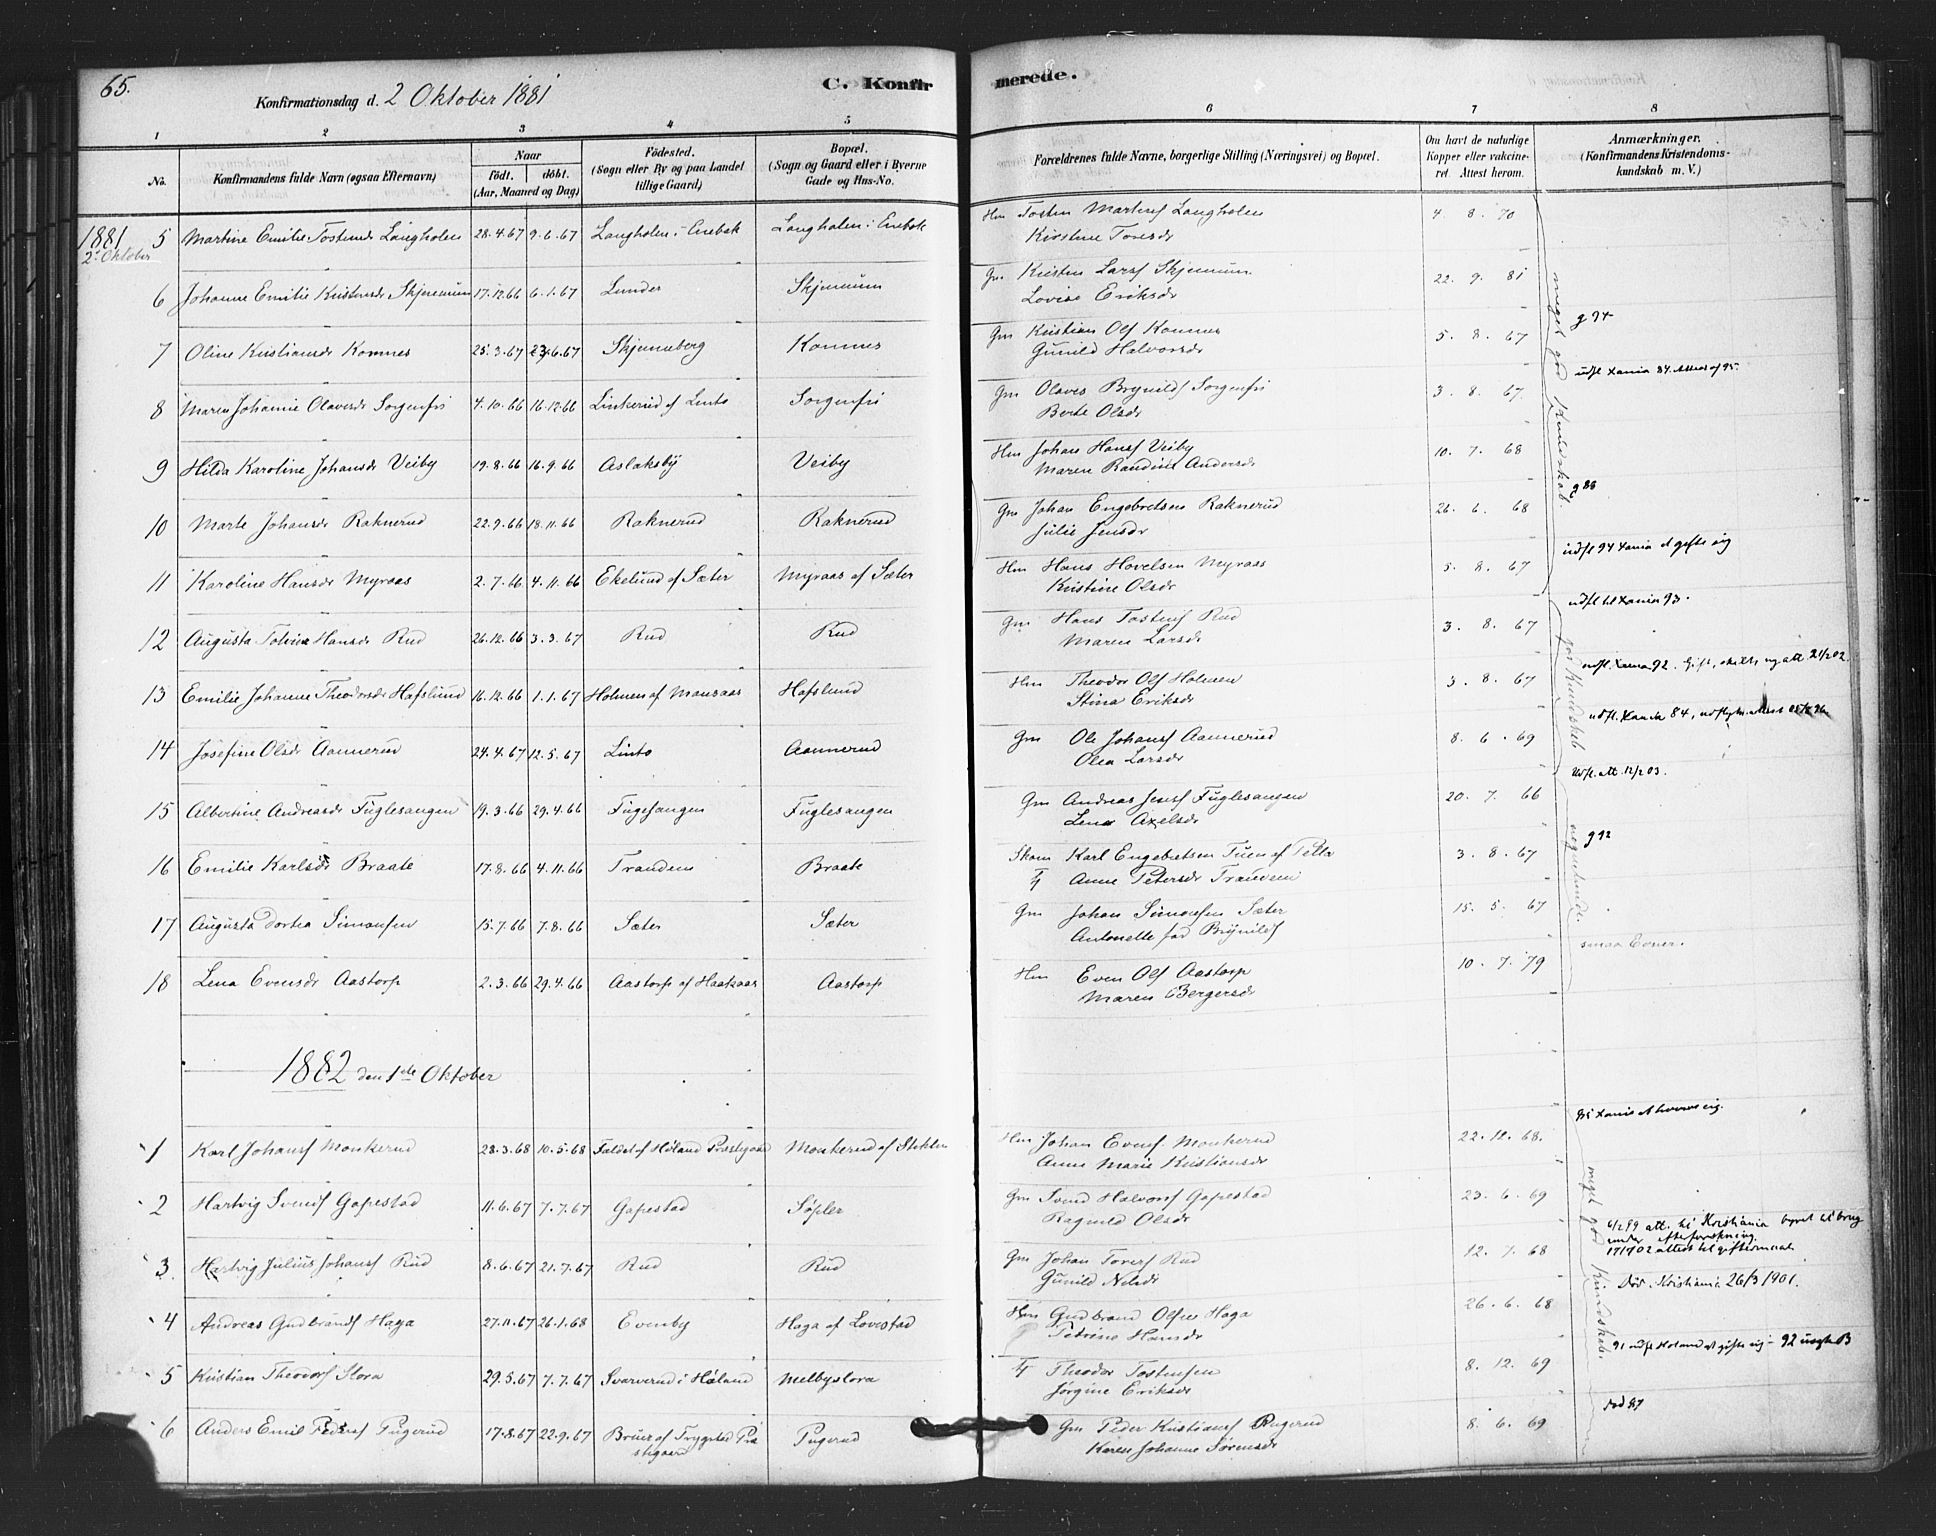 65.
Konfirmationsdag d. 2 Oktober 1881
C. Konfir
merede.
1 2 3 4 5 6 7 8
No.
Konfirmandens fulde Navn (ogsaa Efternavn)
Naar
födt. döbt.
(Aar, Maaned og Dag)
Födested.
(Sogn eller By og paa Landet tillige Gaard)
Bopæl.
(Sogn og Gaard eller i Byerne Gade og Hus-No.
Forældrenes fulde Navne, borgerlige Stilling (Næringsvei) og Bopæl.
Om havt de naturlige Kopper eller vakcineret. Attest herom.
Anmærkninger.
(Konfirmandens Kristendomskundskab m. V.)
1881
2. Oktober
5 Martine Emilie Tostensdr Langholen 28.4.67 9.6.67 Langholen i Enebak Langholen i Enebak Hm Tosten Martinsf Langholen 4. 8. 70
Kirstine Toresdr
6 Johanne Emilie Kristensdr Skjennum 17.12.66 6.1.67 Lunder Skjennum Gm Kristen Larsf Skjennum 22. 9. 81
Lovise Eriksdr
meget god Kundskab.
g 94
7 Oline Kristiansdr Komnes 25.3.67 23.6.67 Skjenneberg Komnes Gm Kristian Olsf Komnes 5. 8. 67
Gunild Halvorsdr
udfl Xania 84. Attest af 95.
8 Maren Johanne Olavesdr Sorgenfri 4.10.66 16.12.66 Linkerud af Linto Sorgenfri Gm Olaves Brynildsf Sorgenfri 3. 8. 67.
Berte Olsdr
9 Hilda Karoline Johansdr Veiby 19.8.66 16.9.66 Aslaksby Veiby Hm Johan Hansf Veiby 10. 7. 68
Maren Randine Andersdr
g 88
10 Marte Johansdr Raknerud 22.9.66 18.11.66 Raknerud Raknerud Gm Johan Engebretsen Raknerud 26. 6. 68
Julie Jensdr
udfl 94 Xania at gifte sig
11 Karoline Hansdr Myraas 2.7.66 4.11.66 Ekelund af Sæter Myraas af Sæter Hm Hans Hovelsen Myraas 5. 8. 67
Kristine Olsdr
udfl til Xania 93.
12 Augusta Toline Hansdr Rud 26.12.66 3.3.67 Rud Rud Gm Hans Tostensf Rud 3. 8. 67
Maren Larsdr
god Kundskab
udfl. Xania 92. Gift, skilts og att. 21/2 02.
13 Emilie Johanne Theodorsdr Hafslund 16.12.66 1.1.67 Holmen af Monsaas Hafslund Hm Theodor Olsf Holmen 3. 8. 67
Stina Eriksdr
udfl. Xania 84, udflytn.attest
14 Josefine Olsdr Aannerud 24.4.67 12.5.67 Linto Aannerud Gm Ole Johansf Aannerud 8. 6. 69
Olea Larsdr
Udfl. att. 12/2 03.
15 Albertine Andreasdr Fuglesangen 19.3.66 29.4.66 Fugesangen Fuglesangen Gm Andreas Jensf Fuglesangen 20. 7. 66
Lena Axelsdr
g 92
16 Emilie Karlsdr Braate 17.8.66 4.11.66 Trandem Braate Skom Karl Engebretsen Tuen af Tella 3. 8. 67
Tj Anne Petersdr Trandem
17 Augusta Dortea Simonsen 15.7.66 7.8.66 Sæter Sæter Gm Johan Simonsen Sæter 15. 5. 67
Antonette fød Brynildsf
smaa Evner.
18 Lena Evensdr Aastorp 2.3.66 29.4.66 Aastorp af Haakaas Aastorp Hm Even Olsf Aastorp 10. 7. 79
Maren Bergersdr
1882 den 1ste Oktober
1 Karl Johansf Monkerud 28.3.68 10.5.68 Faldet af Høland Præstegaard Monkerud af Stiklen Hm Johan Evensf Monkerud 22. 12. 68.
Anne Marie Kristiansdr
meget god Kundskab.
2 Hartvig Svendsf Gapestad 11.6.67 7.7.67 Gapestad Søpler Gm Svend Halvorsf Gapestad 23. 6. 69
Ragnild Olsdr
6/2 99 att. til Kristiania byret til brug
under efterforskning.
17/7 02 attest til giftermaal.
3 Hartvig Julius Johansf Rud 8.6.67 21.7.67 Rud Rud Gm Johan Toresf Rud 12. 7. 68
Gunild Nelsdr
Död. Kristiania 26/3 1901.
4 Andreas Gudbrandsf Haga 27.11.67 26.1.68 Evenby Haga af Lovestad Hm Gudbrand Olsen Haga 26. 6. 68
Petrine Hansdr
91 udfl Høland at gifte sig - 92
5 Kristian Theodorsf Slora 29.5.67 7.7.67 Svarverud i Høland Melbyslora Tj Theodor Tostensen 8. 12. 69
Jørgine Eriksdr
død 87
6 Anders Emil Pedersf Pugerud 17.8.67 22.9.67 Bruer af Trygstad Præstegaard Pugerud Gm Peder Kristiansf Pugerud 8. 6. 69
Karen Johanne Sørensdr